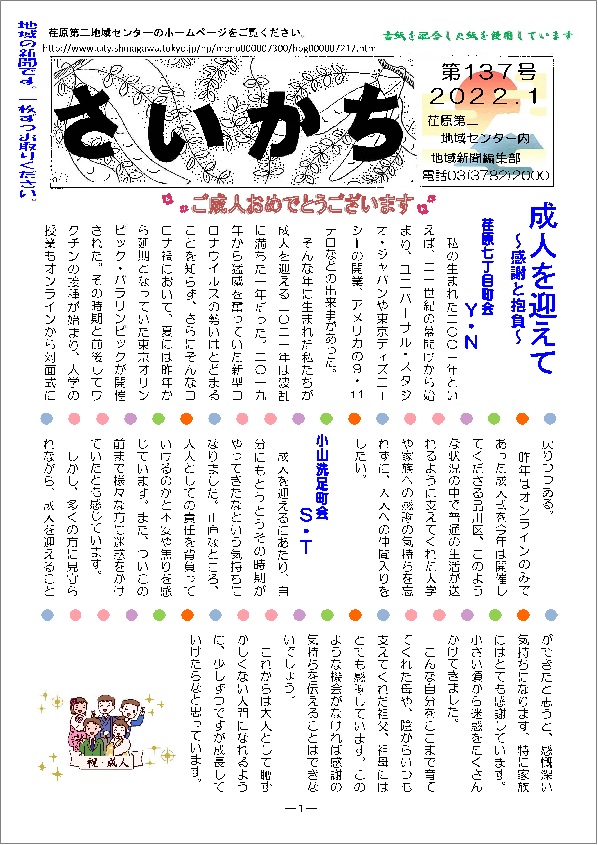 地域の新聞です。一枚ずつお取りください。
荏原第二地域センターのホームページをご覧ください。
古紙を配合した紙を使用しています
さいかち
第137号
2022.1
荏原第二
地域センター内
地域新聞編集部
電話03(3782)2000
ご成人おめでとうございます
成人を迎えて
～感謝と抱負～
荏原七丁目町会
Y・N
私の生まれた二〇〇一年とい
えば、二一世紀の幕開けから始
まり、ユニバーサル・スタジ
オ・ジャパンや東京ディズニー
シーの開業、アメリカの9・11
テロなどの出来事があった。
そんな年に生まれた私たちが
成人を迎える二〇二一年は波乱
に満ちた一年だった。二〇一九
年から猛威を奮っていた新型コ
ロナウイルスの勢いはとどまる
ことを知らず、さらにそんなコ
ロナ禍において、夏には昨年か
ら延期となっていた東京オリン
ピック・パラリンピックが開催
された。その時期と前後してワ
クチンの接種が始まり、大学の
授業もオンラインから対面式に
戻りつつある。
昨年はオンラインのみで
あった成人式を今年は開催し
てくださる品川区、このよう
な状況の中で普通の生活が送
れるように支えてくれた大学
や家族への感謝の気持ちを忘
れずに、大人への仲間入りを
したい。
小山洗足町会
S・T
成人を迎えるにあたり、自
分にもとうとうその時期が
やってきたなという気持ちに
なりました。正直なところ、
大人としての責任を背負って
いけるのかと不安や焦りを感
じています。また、ついこの
前まで様々な方に迷惑をかけ
ていたとも感じています。
しかし、多くの方に見守ら
れながら、成人を迎えること
ができたと思うと、感慨深い
気持ちになります。特に家族
にはとても感謝しています。
小さい頃から迷惑をたくさん
かけてきました。
こんな自分をここまで育て
てくれた母や、陰からいつも
支えてくれた祖父、祖母には
とても感謝しています。この
ような機会がなければ感謝の
気持ちを伝えることはできな
いでしょう。
これからは大人として恥ず
かしくない人間になれるよう
に、少しずつですが成長して
いけたらなと思っています。
祝・成人
―1―